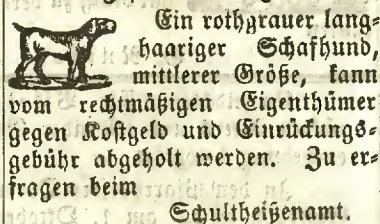 Ein rothgrauer lang=
haariger Schafhund,
mittlerer Größe, kann
vom rechtmäßigen Eigenthümer
gegen Kostgeld und Einrückungs=
gebühr abgeholt werden. Zu er=
fragen beim
Schultheißenamt.